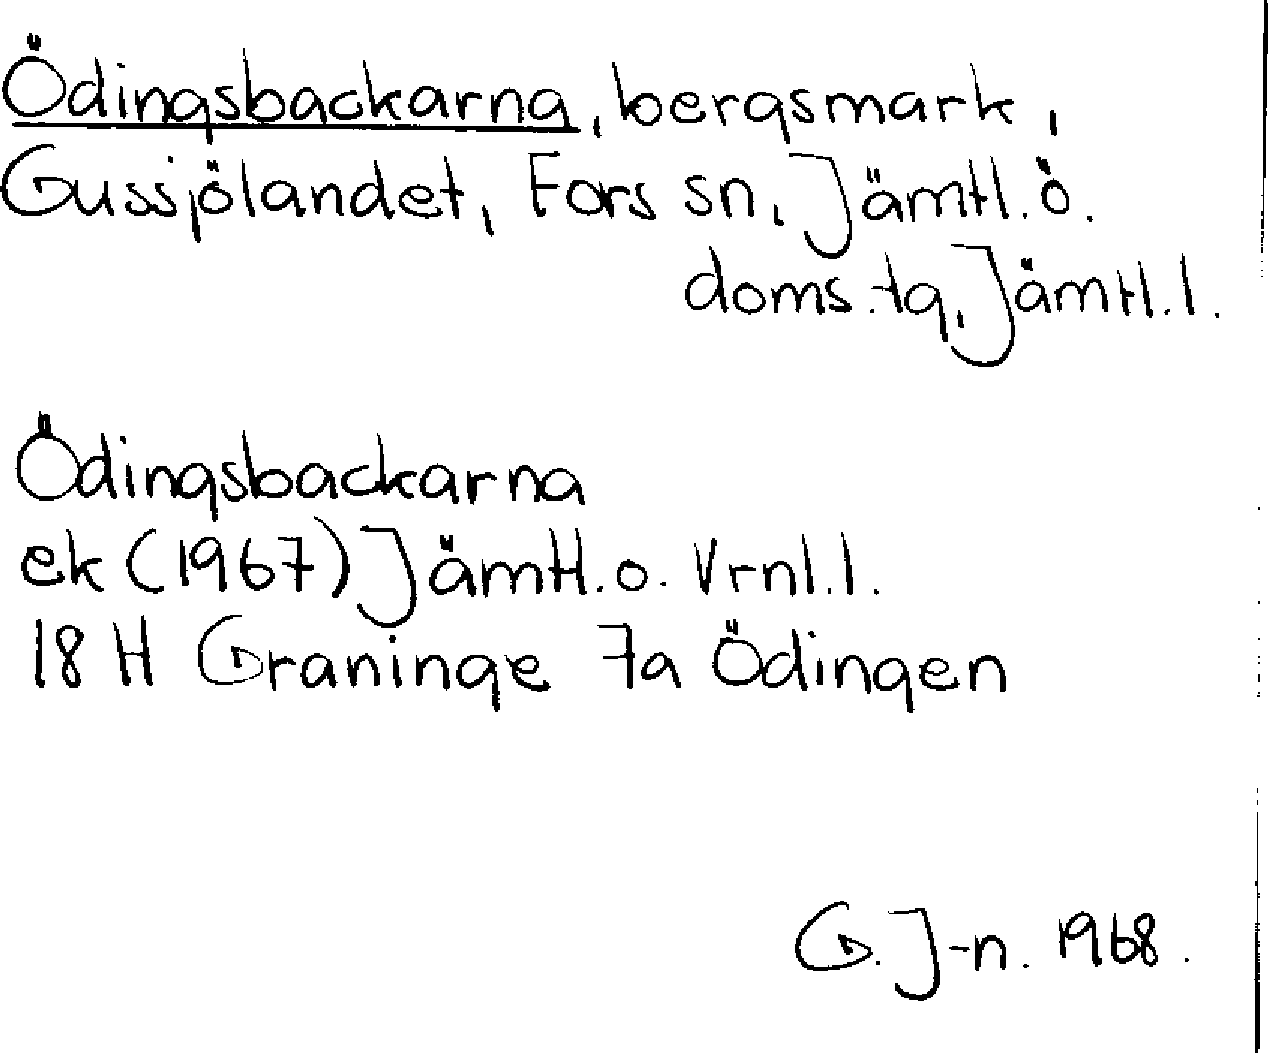 Ödingsbackarna, bergsmark,
Gussjölandet, Fors sn, Jämtl.ö.
doms.tg, Jämtl.l.
Ödingsbackarna
ek (1967) Jämtl.o. Vrnl.l.
18 H Graninge 7a Ödingen
G. J-n. 1968.